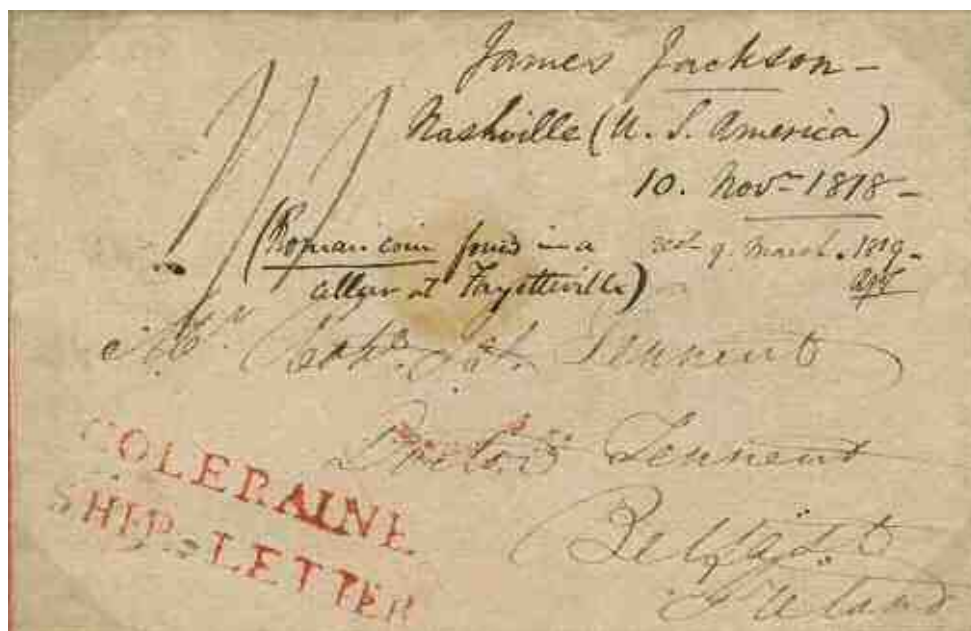 James Jackson -
Nashville (U. S. America)
10. Novr 1818 -
(Roman coin found in a
cellar at Fayetteville)
recd 9. March. 1819.
Tennent
Doctor Tennent
Belfast
Ireland
COLERAINE
SHIP-LETTER